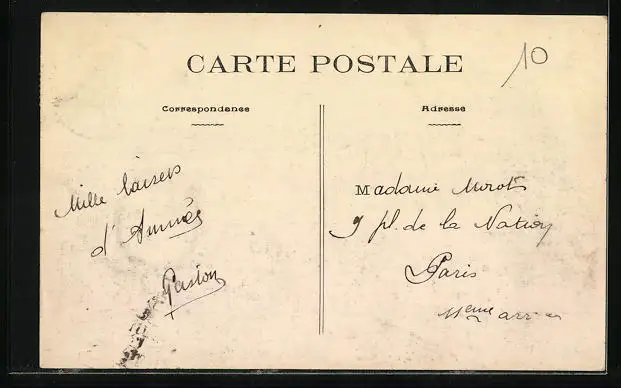 CARTE POSTALE
10
Correspondance
Adresse
Mille baisers
d'Année
Gaston
Madame Morot
9 pl. de la Nation
Paris
11eme arr